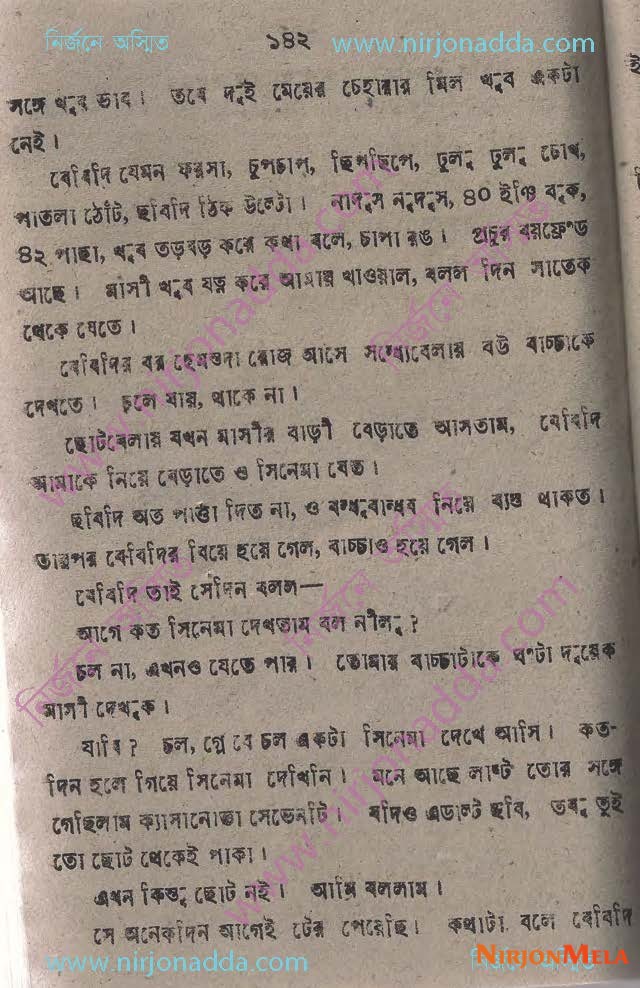 নির্জনে অস্মিত ১৪২ www.nirjonadda.com
সঙ্গে খুব ভাব। তবে দুই মেয়ের চেহারার মিল খুব একটা
নেই।
বেবিদি যেমন ফরসা, চুপচাপ, ছিপছিপে, ঢুলু ঢুলু চোখ,
পাতলা ঠোঁট, ছবিদি ঠিক উল্টো। নাদুস নুদুস, ৪০ ইঞ্চি বুক,
৪২ পাছা, খুব তড়বড় করে কথা বলে, চাপা রঙ। প্রচুর বয়ফ্রেন্ড
আছে। মাসী খুব যত্ন করে আমায় খাওয়াল, বলল দিন সাতেক
থেকে যেতে।
বেবিদির বর হেমন্তদা রোজ আসে সন্ধ্যেবেলায় বউ বাচ্চাকে
দেখতে। চলে যায়, থাকে না।
ছোটবেলায় যখন মাসীর বাড়ী বেড়াতে আসতাম, বেবিদি
আমাকে নিয়ে বেড়াতে ও সিনেমা যেত।
ছবিদি অত পাত্তা দিত না, ও বন্ধুবান্ধব নিয়ে ব্যস্ত থাকত।
তারপর বেবিদির বিয়ে হয়ে গেল, বাচ্চাও হয়ে গেল।
বেবিদি তাই সেদিন বলল—
আগে কত সিনেমা দেখতাম বল নীলু?
চল না, এখনও যেতে পার। তোমার বাচ্চাটাকে ঘন্টা দুয়েক
মাসী দেখুক।
যাবি? চল, গ্লোবে চল একটা সিনেমা দেখে আসি। কত-
দিন হলে গিয়ে সিনেমা দেখিনি। মনে আছে লাস্ট তোর সঙ্গে
গেছিলাম ক্যাসানোভা সেভেনটি। যদিও এডাল্ট ছবি, তবু তুই
তো ছোট থেকেই পাকা।
এখন কিন্তু ছোট নই। আমি বললাম।
সে অনেকদিন আগেই টের পেয়েছি। কথাটা বলে বেবিদি
www.nirjonadda.com নির্জনে অস্মিত
NIRJONMELA